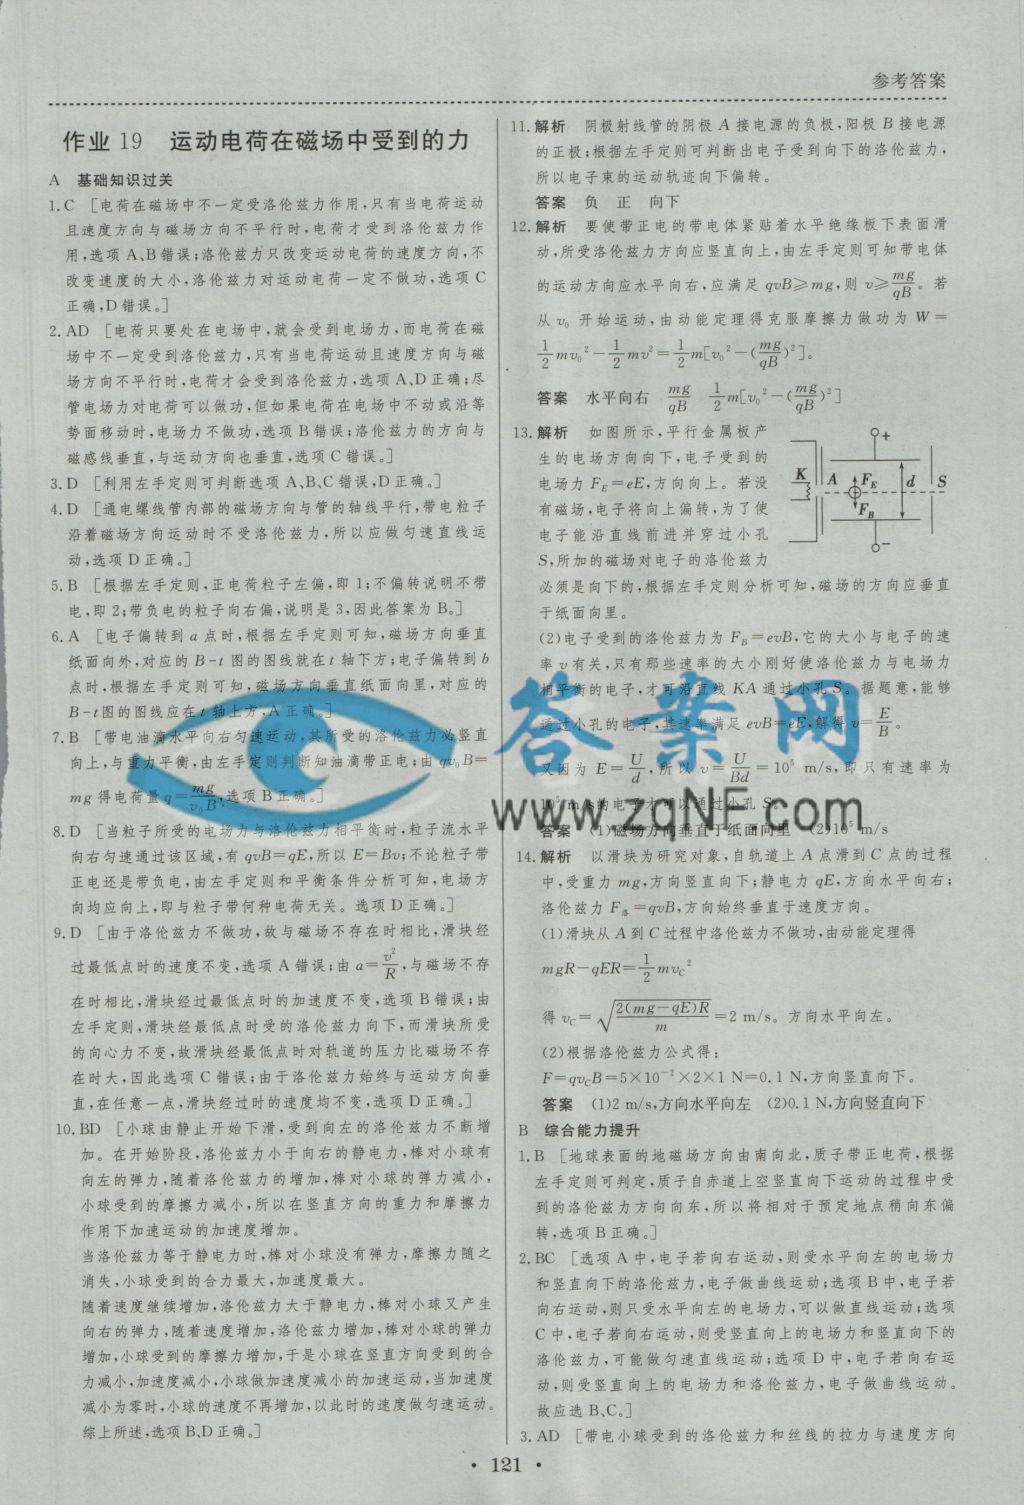 参考答案
作业 19　运动电荷在磁场中受到的力
A　基础知识过关
1. C　[电荷在磁场中不一定受洛伦兹力作用,只有当电荷运动
且速度方向与磁场方向不平行时,电荷才受到洛伦兹力作
用,选项 A、B 错误;洛伦兹力只改变运动电荷的速度方向,不
改变速度的大小,洛伦兹力对运动电荷一定不做功,选项 C
正确,D 错误。]
2. AD　[电荷只要处在电场中,就会受到电场力,而电荷在磁
场中不一定受到洛伦兹力,只有当电荷运动且速度方向与磁
场方向不平行时,电荷才会受到洛伦兹力,选项 A、D 正确;尽
管电场力对电荷可以做功,但如果电荷在电场中不动或沿等
势面移动时,电场力不做功,选项 B 错误;洛伦兹力的方向与
磁感线垂直,与运动方向也垂直,选项 C 错误。]
3. D　[利用左手定则可判断选项 A、B、C 错误,D 正确。]
4. D　[通电螺线管内部的磁场方向与管的轴线平行,带电粒子
沿着磁场方向运动时不受洛伦兹力,所以应做匀速直线运
动,选项 D 正确。]
5. B　[根据左手定则,正电荷粒子左偏,即 1;不偏转说明不带
电,即 2;带负电的粒子向右偏,说明是 3,因此答案为 B。]
6. A　[电子偏转到 a 点时,根据左手定则可知,磁场方向垂直
纸面向外,对应的 B-t 图的图线就在 t 轴下方;电子偏转到 b
点时,根据左手定则可知,磁场方向垂直纸面向里,对应的
B-t 图的图线应在 t 轴上方,A 正确。]
7. B　[带电油滴水平向右匀速运动,其所受的洛伦兹力必竖直
向上,与重力平衡,由左手定则判断知油滴带正电;由 qv₀B=
mg 得电荷量 q=mg/(v₀B),选项 B 正确。]
8. D　[当粒子所受的电场力与洛伦兹力相平衡时,粒子流水平
向右匀速通过该区域,有 qvB=qE,所以 E=Bv;不论粒子带
正电还是带负电,由左手定则和平衡条件分析可知,电场方
向均应向上,即与粒子带何种电荷无关。选项 D 正确。]
9. D　[由于洛伦兹力不做功,故与磁场不存在时相比,滑块经
过最低点时的速度不变,选项 A 错误;由 a=v²/R,与磁场不存
在时相比,滑块经过最低点时的加速度不变,选项 B 错误;由
左手定则,滑块经最低点时受的洛伦兹力向下,而滑块所受
的向心力不变,故滑块经最低点时对轨道的压力比磁场不存
在时大,因此选项 C 错误;由于洛伦兹力始终与运动方向垂
直,在任意一点,滑块经过时的速度均不变,选项 D 正确。]
10. BD　[小球由静止开始下滑,受到向左的洛伦兹力不断增
加。在开始阶段,洛伦兹力小于向右的静电力,棒对小球有
向左的弹力,随着洛伦兹力的增加,棒对小球的弹力减小,
小球受到的摩擦力减小,所以在竖直方向的重力和摩擦力
作用下加速运动的加速度增加。
当洛伦兹力等于静电力时,棒对小球没有弹力,摩擦力随之
消失,小球受到的合力最大,加速度最大。
随着速度继续增加,洛伦兹力大于静电力,棒对小球又产生
向右的弹力,随着速度增加,洛伦兹力增加,棒对小球的弹力
增加,小球受到的摩擦力增加,于是小球在竖直方向受到的合
力减小,加速度减小,小球做加速度减小的加速运动,当加速度
减小为零时,小球的速度不再增加,以此时的速度做匀速运动。
综上所述,选项 B、D 正确。]
11. 解析　阴极射线管的阴极 A 接电源的负极,阳极 B 接电源
的正极;根据左手定则可判断出电子受到向下的洛伦兹力,
所以电子束的运动轨迹向下偏转。
答案　负　正　向下
12. 解析　要使带正电的带电体紧贴着水平绝缘板下表面滑
动,所受洛伦兹力方向应竖直向上,由左手定则可知带电体
的运动方向应水平向右,应满足 qvB≥mg,则 v≥mg/(qB)。若
从 v₀ 开始运动,由动能定理得克服摩擦力做功为 W=
1/2 mv₀²−1/2 mv²=1/2 m[v₀²−(mg/(qB))²]。
答案　水平向右　mg/(qB)　1/2 m[v₀²−(mg/(qB))²]
13. 解析　如图所示,平行金属板产
生的电场方向向下,电子受到的
电场力 F_E=eE,方向向上。若没
有磁场,电子将向上偏转,为了使
电子能沿直线前进并穿过小孔
S,所加的磁场对电子的洛伦兹力
+
K A F_E d S
F_B
−
必须是向下的,根据左手定则分析可知,磁场的方向应垂直
于纸面向里。
(2)电子受到的洛伦兹力为 F_B=evB,它的大小与电子的速
率 v 有关,只有那些速率的大小刚好使洛伦兹力与电场力
相平衡的电子,才可沿直线 KA 通过小孔 S。据题意,能够
通过小孔的电子,其速率满足 evB=eE,解得 v=E/B。
又因为 E=U/d,所以 v=U/(Bd)=10⁵ m/s,即只有速率为
10⁵ m/s的电子才可以通过小孔 S。
答案　(1)磁场方向垂直于纸面向里　(2)10⁵ m/s
14. 解析　以滑块为研究对象,自轨道上 A 点滑到 C 点的过程
中,受重力 mg,方向竖直向下;静电力 qE,方向水平向右;
洛伦兹力 F洛=qvB,方向始终垂直于速度方向。
(1)滑块从 A 到 C 过程中洛伦兹力不做功,由动能定理得
mgR−qER=1/2 mv_C²
得 v_C=√(2(mg−qE)R/m)=2 m/s。方向水平向左。
(2)根据洛伦兹力公式得:
F=qv_CB=5×10⁻²×2×1 N=0.1 N,方向竖直向下。
答案　(1)2 m/s,方向水平向左　(2)0.1 N,方向竖直向下
B　综合能力提升
1. B　[地球表面的地磁场方向由南向北,质子带正电荷,根据
左手定则可判定,质子自赤道上空竖直向下运动的过程中受
到的洛伦兹力方向向东,所以将相对于预定地点稍向东偏
转,选项 B 正确。]
2. BC　[选项 A 中,电子若向右运动,则受水平向左的电场力
和竖直向下的洛伦兹力,电子做曲线运动;选项 B 中,电子若
向右运动,则只受水平向左的电场力,可以做直线运动;选项
C 中,电子若向右运动,则受竖直向上的电场力和竖直向下的
洛伦兹力,可能做匀速直线运动;选项 D 中,电子若向右运
动,则受竖直向上的电场力和洛伦兹力,电子做曲线运动。
故应选 B、C。]
3. AD　[带电小球受到的洛伦兹力和丝线的拉力与速度方向
答案网
www.zqNF.com
• 121 •